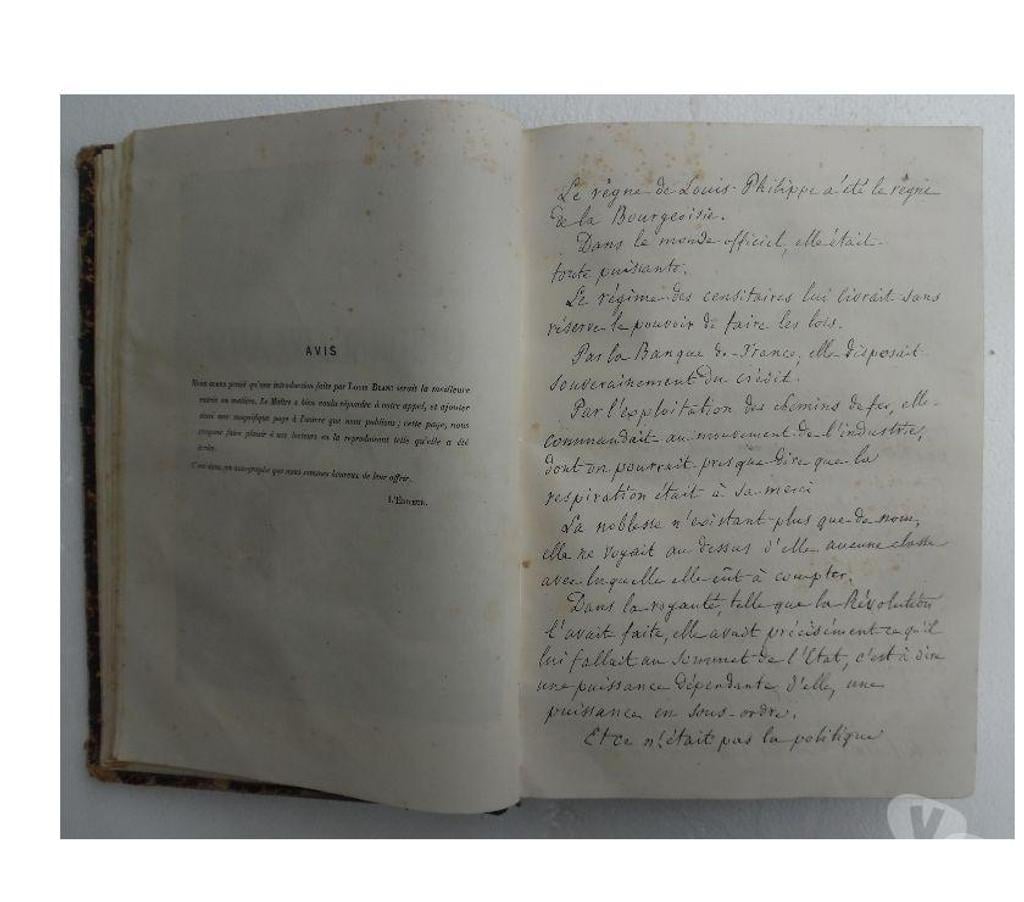 AVIS
Nous avons pensé qu'une introduction faite par LOUIS BLANC serait la meilleure
entrée en matière. Le Maître a bien voulu répondre à notre appel, et ajouter
ainsi une magnifique page à l'œuvre que nous publions ; cette page, nous
croyons faire plaisir à nos lecteurs en la reproduisant telle qu'elle a été
écrite.
C'est donc un autographe que nous sommes heureux de leur offrir.
L'ÉDITEUR.
Le règne de Louis-Philippe a été le règne
de la Bourgeoisie.
Dans le monde officiel, elle était
toute puissante.
Le régime des censitaires lui livrait sans
réserve le pouvoir de faire les lois.
Par la Banque de France, elle disposait
souverainement du crédit.
Par l'exploitation des chemins de fer, elle
commandait au mouvement de l'industrie,
dont on pourrait presque dire que la
respiration était à sa merci
La noblesse n'existant plus que de nom,
elle ne voyait au dessus d'elle aucune classe
avec laquelle elle eût à compter.
Dans la royauté, telle que la Révolution
l'avait faite, elle avait précisément ce qu'il
lui fallait au sommet de l'Etat, c'est à dire
une puissance dépendante d'elle, une
puissance en sous-ordre.
Et ce n'était pas la politique
V